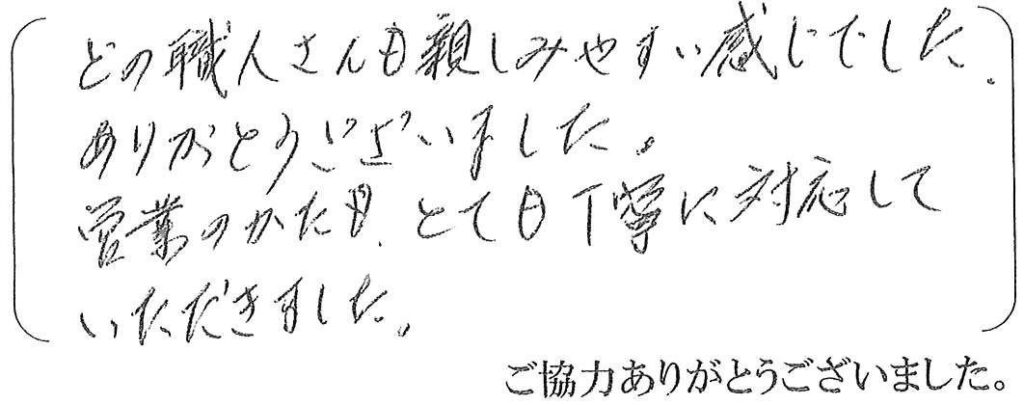 どの職人さんも親しみやすい感じでした.
ありがとうございました。
営業のかたも、とても丁寧に対応して
いただきました。
ご協力ありがとうございました。